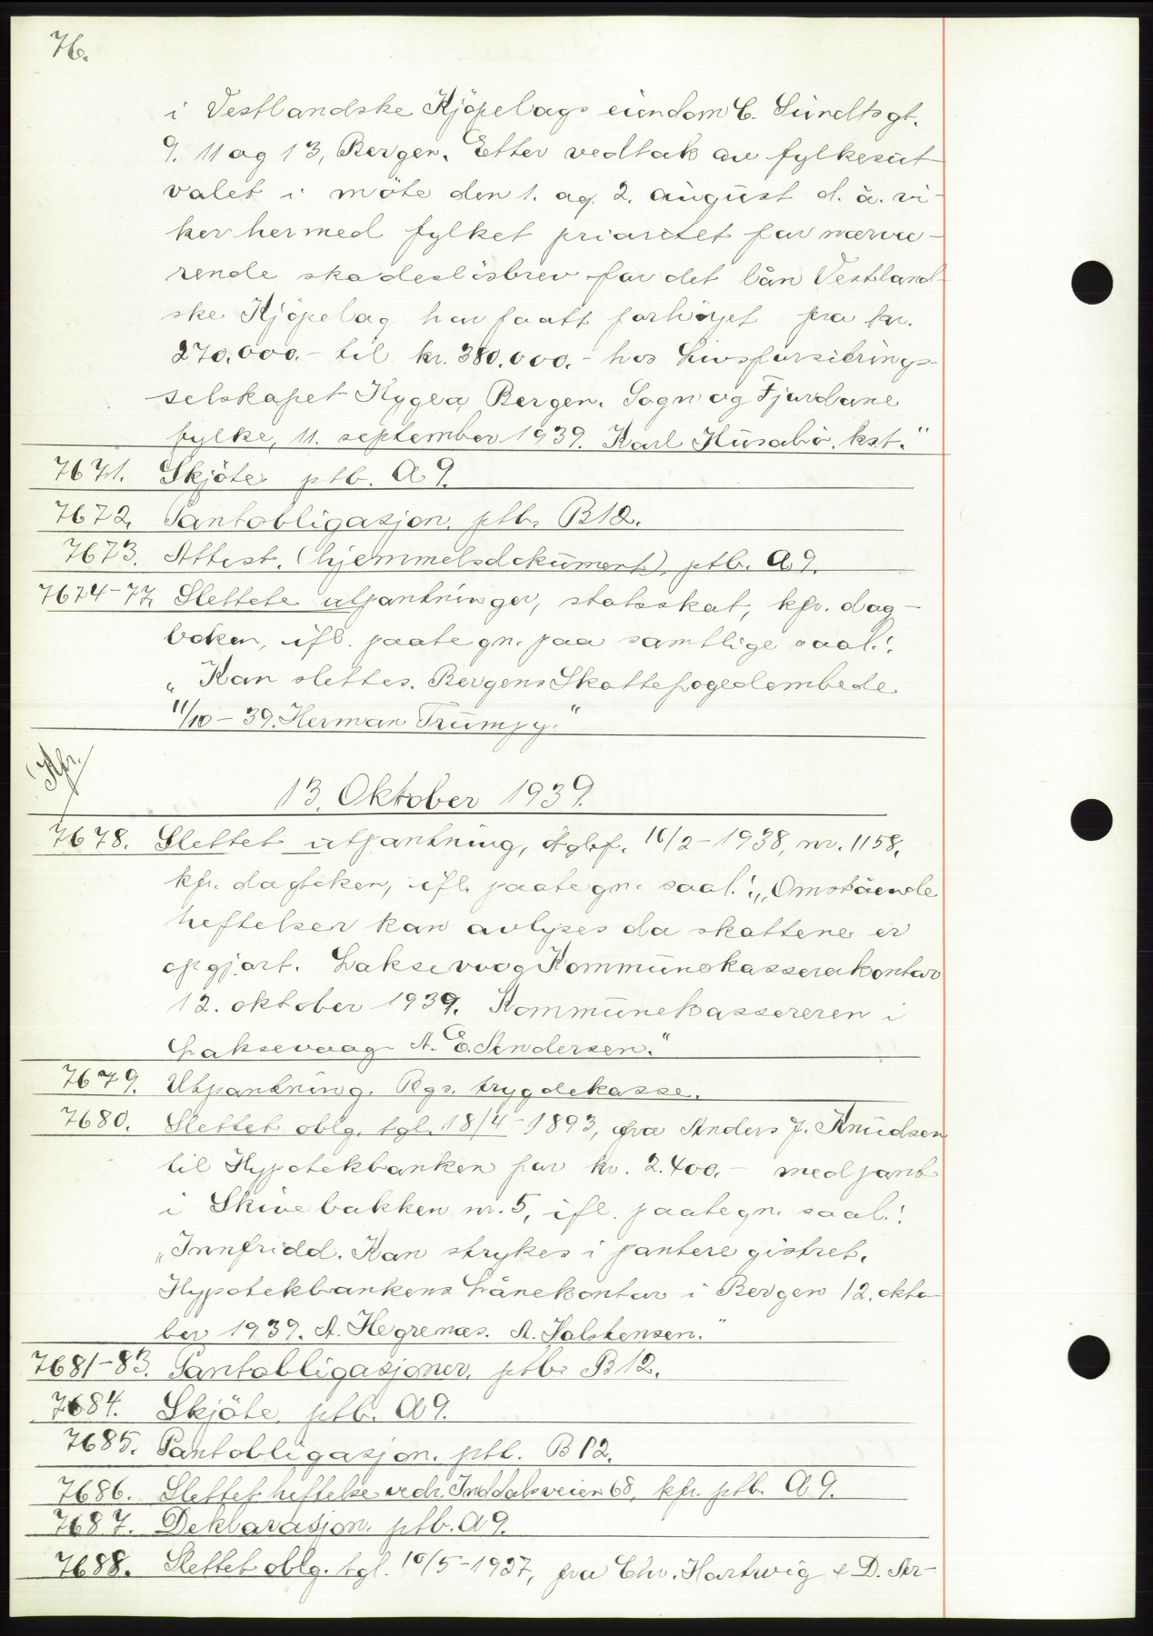 76.
i Vestlandske Kjöpelags eiendom C. Sundtsgt.
9. 11 og 13, Bergen. Etter vedtak av fylkesut-
valet i möte den 1. og 2. august d. å. vi-
ker hermed fylket prioritet for nærvæ-
rende skadeslösbrev for det lån Vestland-
ske Kjöpelag har faatt forhöyet fra kr.
270.000.- til kr. 380.000.- hos Livsforsikrings-
selskapet Hygea, Bergen. Sogn og Fjordane
fylke, 11. september 1939. Karl Husabö. kst."
7671. Skjöte ptb. A 9.
7672. Pantobligasjon. ptb. B12.
7673. Attest. (hjemmelsdokument). ptb. A 9.
7674-77. Slettete utpantninger, statsskat, kfr. dag-
boken, ifl. paategn. paa samtlige saal.:
"Kan slettes. Bergens Skattefogedembede
11/10 - 39. Herman Trumpy."
Kfr.
13. Oktober 1939.
7678. Slettet utpantning, tglf. 16/2 - 1938, nr. 1158,
kfr. dagboken, ifl. paategn. saal.: "Omstående
heftelser kan avlyses da skattene er
opgjort. Laksevaag Kommunekassererkontor
12. oktober 1939. Kommunekassereren i
Laksevaag A. E. Andersen."
7679. Utpantning. Bgs. trygdekasse.
7680. Slettet oblg. tgl. 18/4 - 1893, fra Anders J. Knudsen
til Hypotekbanken for kr. 2.400.- med pant
i Skivebakken nr. 5, ifl. paategn. saal.:
"Innfridd. Kan strykes i panteregistret.
Hypotekbankens Lånekontor i Bergen 12. okto-
ber 1939. A. Hegrenæs. A. Halstensen."
7681-83. Pantobligasjoner. ptb. B12.
7684. Skjöte. ptb. A 9.
7685. Pantobligasjon. ptb. B12.
7686. Slettet heftelse vedr. Inddalsveien 68, kfr. ptb. A 9.
7687. Deklarasjon. ptb. A 9.
7688. Slettet oblg. tgl. 10/5 - 1927, fra Chr. Hartwig & D. Ar-